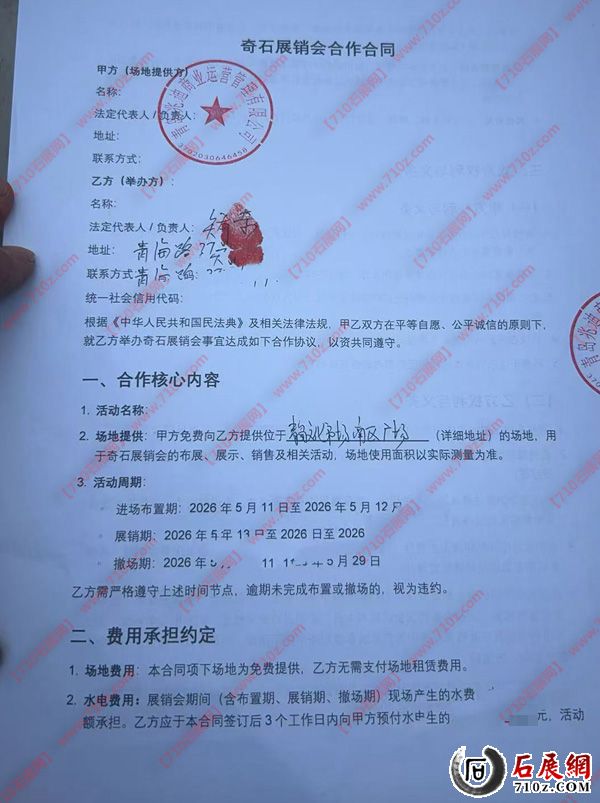 奇石展销会合作合同
甲方（场地提供方）
名称：
法定代表人 / 负责人：
地址：
联系方式：
3702030646458
乙方（举办方）：
名称：
法定代表人 / 负责人：
地址： 青海路
联系方式： 青海路
统一社会信用代码：
根据《中华人民共和国民法典》及相关法律法规，甲乙双方在平等自愿、公平诚信的原则下，
就乙方举办奇石展销会事宜达成如下合作协议，以资共同遵守。
一、合作核心内容
1. 活动名称：
2. 场地提供：甲方免费向乙方提供位于 南区广场 （详细地址）的场地，用
于奇石展销会的布展、展示、销售及相关活动，场地使用面积以实际测量为准。
3. 活动周期：
进场布置期：2026 年 5 月 11 日至 2026 年 5 月 12
展销期：2026 年 5 月 13 日至 2026 日至 2026
撤场期：2026 年 5 月 29 日
乙方需严格遵守上述时间节点，逾期未完成布置或撤场的，视为违约。
二、费用承担约定
1. 场地费用：本合同项下场地为免费提供，乙方无需支付场地租赁费用。
2. 水电费用：展销会期间（含布置期、展销期、撤场期）现场产生的水费
额承担。乙方应于本合同签订后 3 个工作日内向甲方预付水电生的 元，活动
【710石展网】www.710z.com
石展網
710z.com